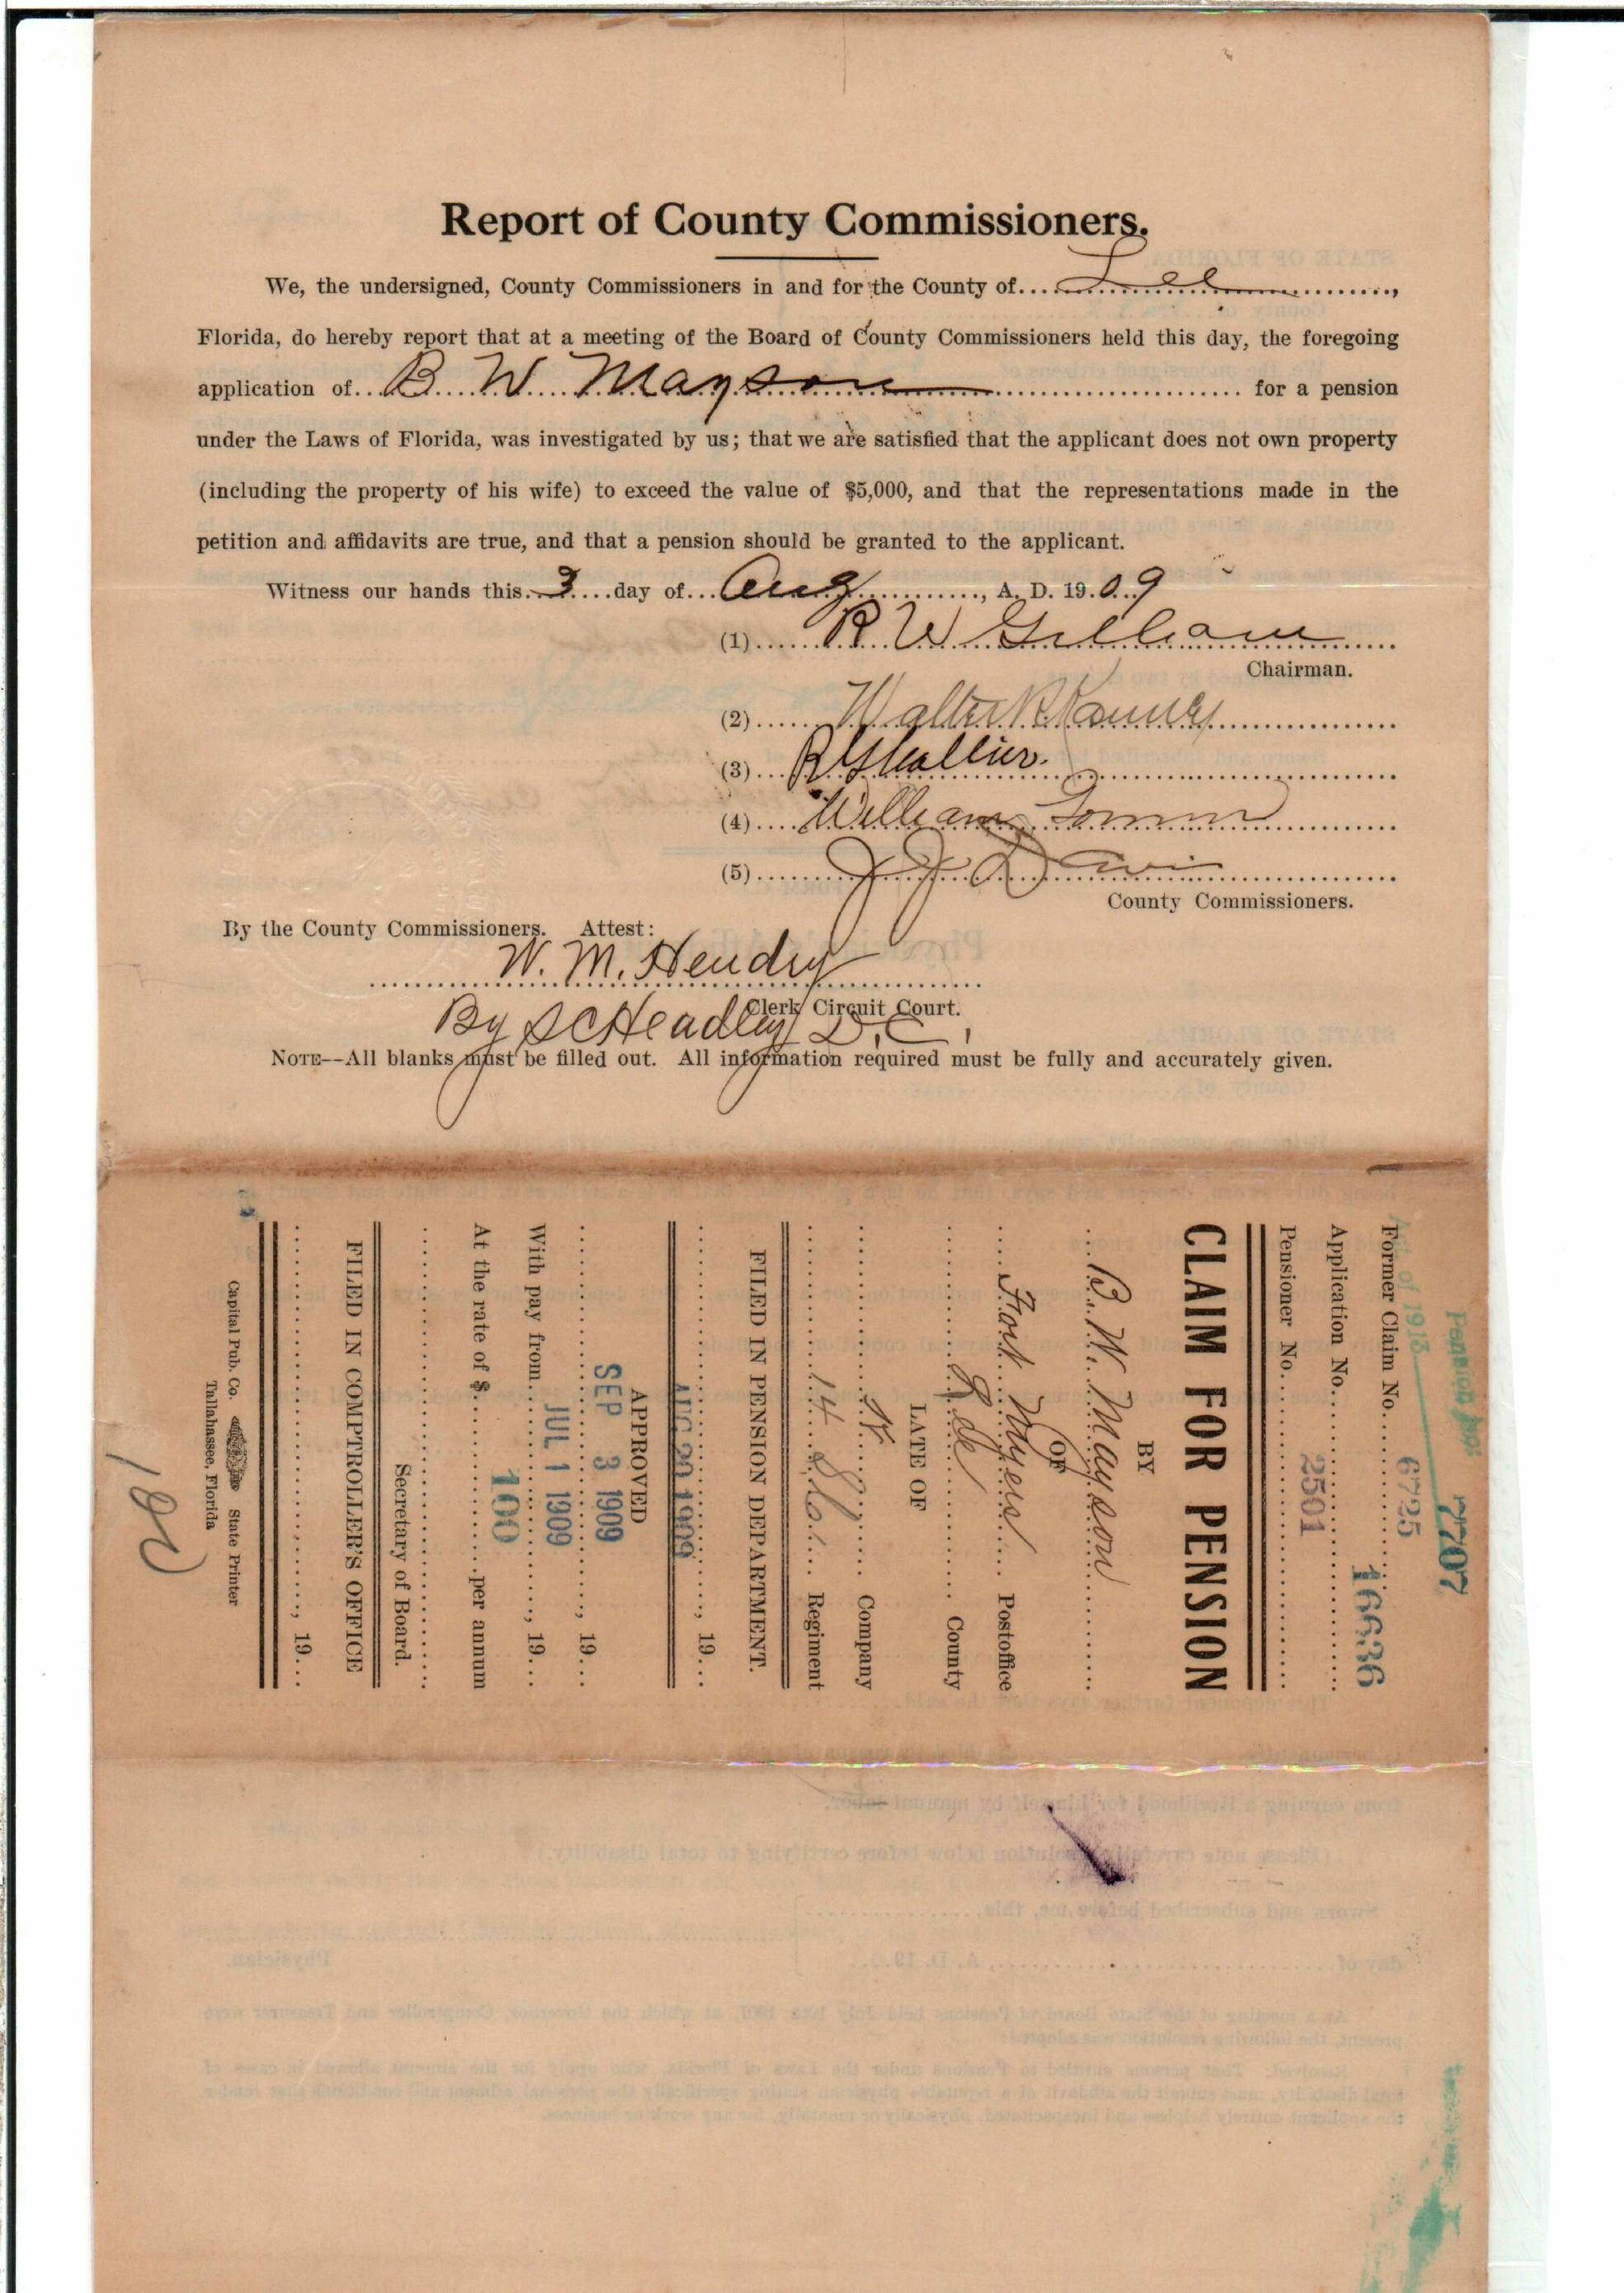 Report of County Commissioners.
We, the undersigned, County Commissioners in and for the County of....Lee....,
Florida, do hereby report that at a meeting of the Board of County Commissioners held this day, the foregoing
application of...B. W. Mayson.... for a pension
under the Laws of Florida, was investigated by us; that we are satisfied that the applicant does not own property
(including the property of his wife) to exceed the value of $5,000, and that the representations made in the
petition and affidavits are true, and that a pension should be granted to the applicant.
Witness our hands this..3....day of...Aug....., A. D. 19.0.9
(1).....R W Gilliam.....
Chairman.
(2)......Walter R
(3)...
(4)....William
(5).......J J Davis
County Commissioners.
By the County Commissioners. Attest:
W. M. Hendry
Clerk Circuit Court.
By S C Headley D. C.
NOTE--All blanks must be filled out. All information required must be fully and accurately given.
Pension 7707
of 1913
Former Claim No. 6725
Application No. 16636
Pensioner No. 2501
CLAIM FOR PENSION
BY
B. W. Mayson
OF
Fort Myers Postoffice
Lee County
LATE OF
K Company
14 Regiment
FILED IN PENSION DEPARTMENT.
AUG 20 1909, 19...
APPROVED
SEP 3 1909, 19...
With pay from JUL 1 1909, 19...
At the rate of $ 100 per annum
Secretary of Board.
FILED IN COMPTROLLER'S OFFICE
, 19...
Capital Pub. Co. State Printer
Tallahassee, Florida